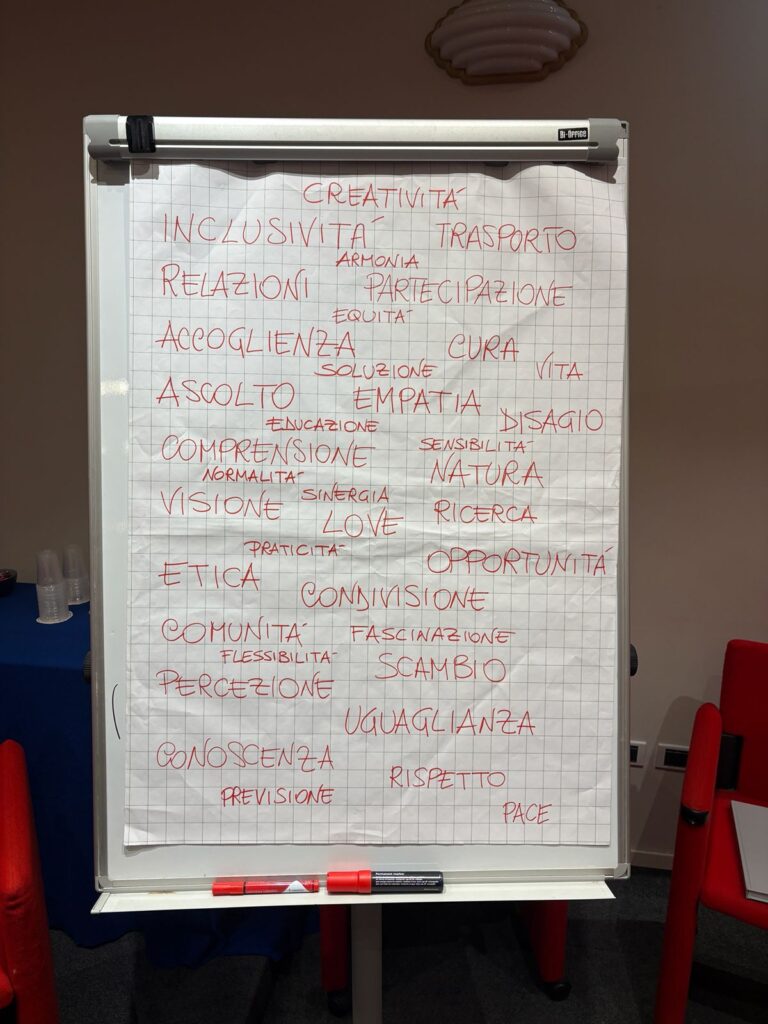 Bi-Office
CREATIVITÁ
INCLUSIVITÁ TRASPORTO
ARMONIA
RELAZIONI PARTECIPAZIONE
EQUITÁ
ACCOGLIENZA CURA
SOLUZIONE VITA
ASCOLTO EMPATIA
EDUCAZIONE DISAGIO
COMPRENSIONE SENSIBILITÁ
NORMALITÁ NATURA
SINERGIA
VISIONE LOVE RICERCA
PRATICITÁ OPPORTUNITÁ
ETICA CONDIVISIONE
COMUNITÁ FASCINAZIONE
FLESSIBILITÁ SCAMBIO
PERCEZIONE
UGUAGLIANZA
CONOSCENZA
RISPETTO
PREVISIONE
PACE
Permanent marker